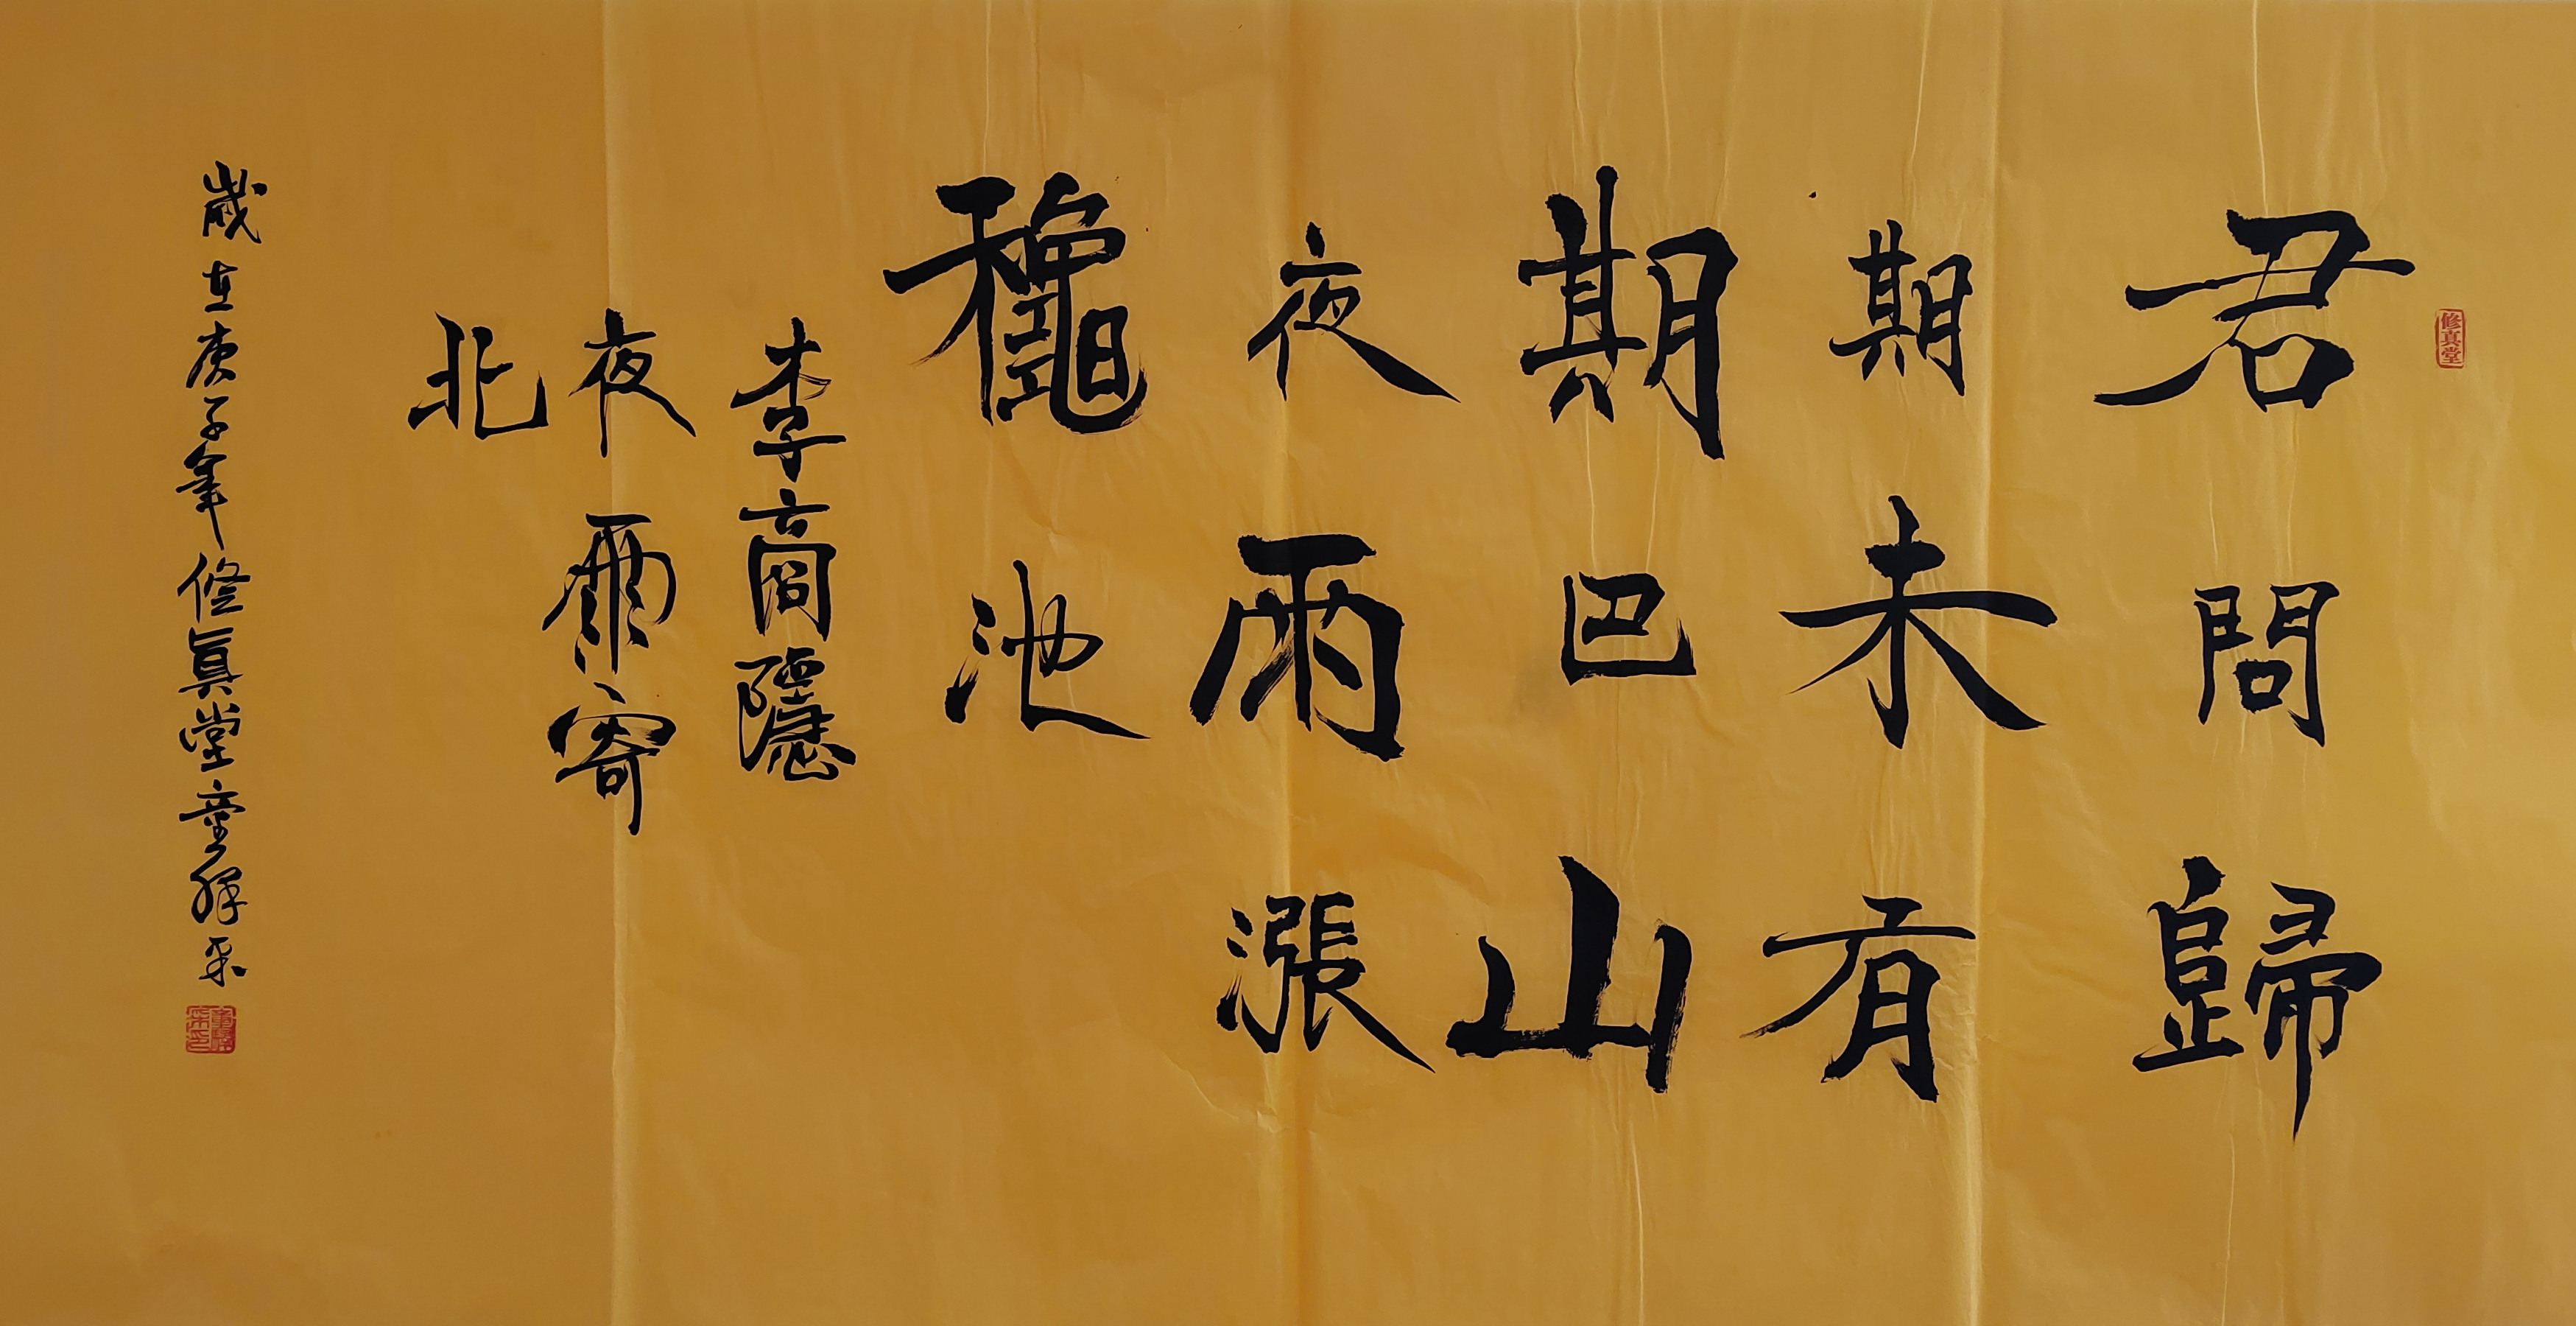 修真堂
君問歸
期未有
期巴山
夜雨漲
龝池
李商隱
夜雨寄
北
歲在庚子年修真堂童